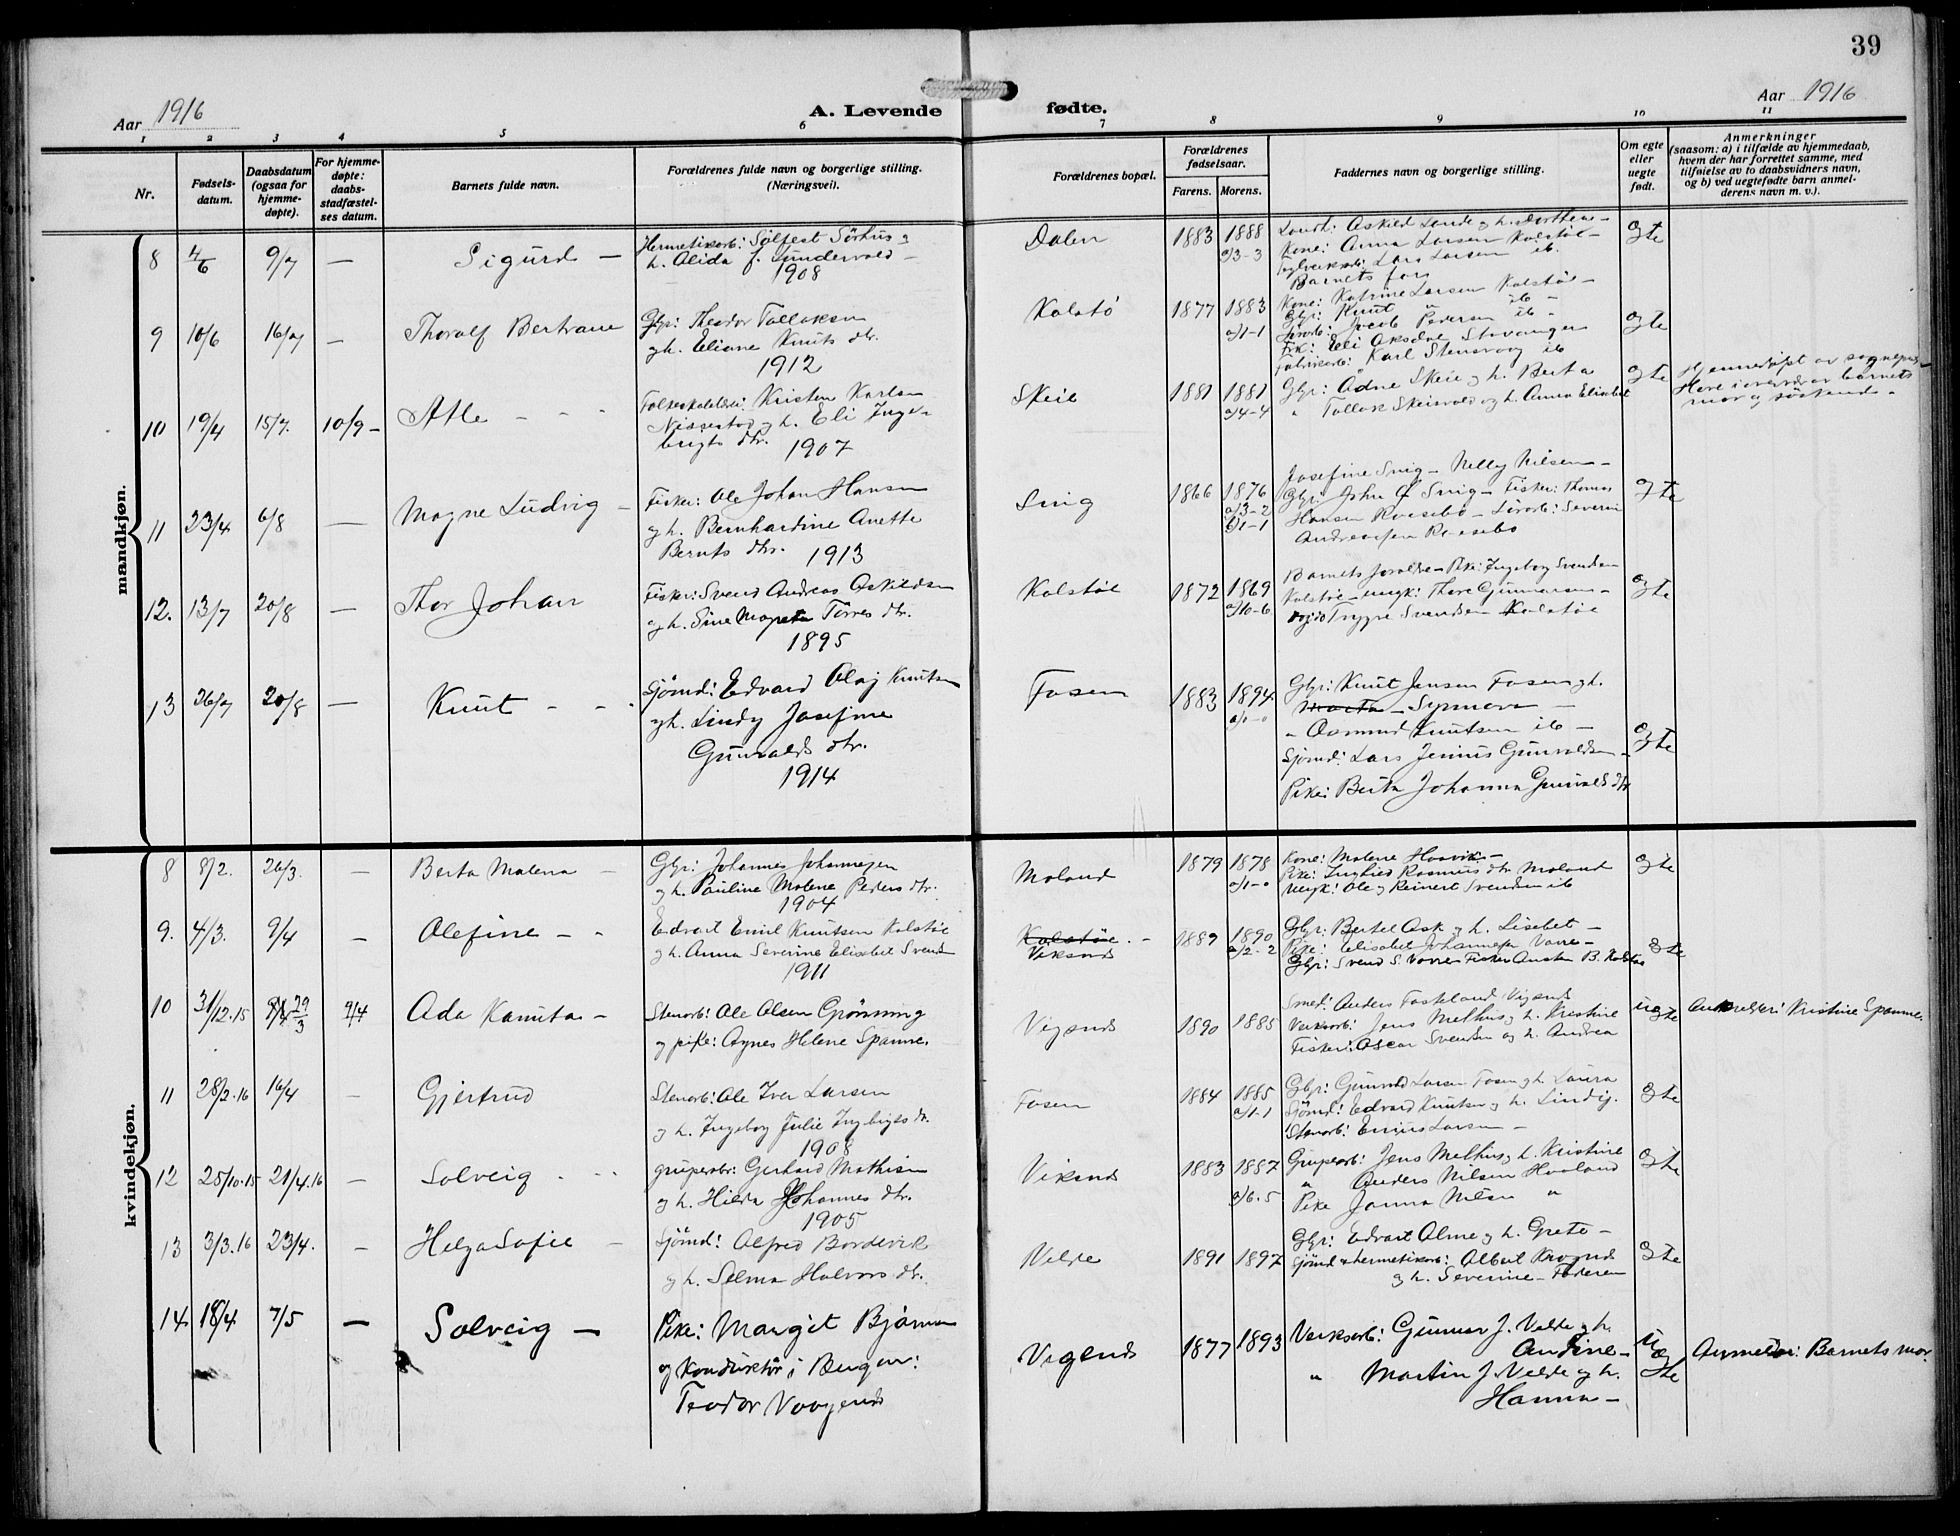 39
Aar 1916
A. Levende fødte.
Aar 1916
1 2 3 4 5 6 7 8 9 10 11
Nr.
Fødsels-
datum.
Daabsdatum
(ogsaa for
hjemme-
døpte).
For hjemme-
døpte:
daabs-
stadfæstel-
ses datum.
Barnets fulde navn.
Forældrenes fulde navn og borgerlige stilling.
(Næringsvei).
Forældrenes bopæl.
Forældrenes
fødselsaar.
Farens. Morens.
Faddernes navn og borgerlige stilling.
Om egte
eller
uegte
født.
Anmerkninger
(saasom: a) i tilfælde av hjemmedaab,
hvem der har forrettet samme, med
tilføielse av to daabsvidners navn,
og b) ved uegtefødte barn anmel-
derens navn m. v.).
mandkjøn.
8 4/6 9/7 — Sigurd —
Hermetikarb: Sølfest Sørhus og
h. Alida f. Gundersvold —
1908
Dalen 1883 1888
a/3-3
Kone: Anna Larsen Kolstøe —
Lars Larsen ib.
Barnets far
Egte
9 10/6 16/7 — Thoralf Bertrane
Gbr: Theodor Tollaksen
og h. Eliane Knuts dtr.
1912
Kolstø 1877 1883
a/1-1
Kone: Katrine Larsen Kolstøe —
Gbr: Knut " ib —
Jacob Pedersen ib —
Frk: Eli Aksdal Stavanger
Fabrikarb: Karl Stensvog ib
Egte
10 19/4 15/7. 10/9 — Atle — — —
Kristen Karlsen
og h. Eli Inge-
brigts dtr.
1907
Skeie 1881 1881
a/4-4
Gbr: Ådne Skeie og h. Berta
" Tollak Skeisvold og h. Anna Elisabet
Egte
Hjemmedøpt av sogneprest
Hove i overvær av barnets
mor og søskende —
11 23/4 6/8 — Magne Ludvig —
Fisker: Ole Johan Hansen
og h. Bernhardine Anette
Bernts dtr. 1913
Snig 1866 1876
a/3-2
b/1-1
Josefine Snig — Nelly Nilsen —
Gbr: John O Snig — Fisker: Thomas
Hansen Roesebø — Severin
Andreassen Roesebø
Egte
12. 13/7 20/8 — Thor Johan
Fisker: Svend Andreas Askildsen
og h. Sine Margreta Torres dtr.
1895
Kolstøe 1872 1869
a/10-6
Barnets foreldre — Pike: Ingeborg Svendsen
Kolstøe — Ungk: Thore Gunnarsen —
og do Trygve Svendsen Kolstøe
Egte
13 26/7 20/8 — Knut — —
Sjømd: Edvard Olaj Knutsen
og h. Lindy Josefine
Gunvalds dtr.
1914
Fosen 1883 1894
a/0-0
Gbr: Knut Jensen Fosen og h.
Marta — Synnøva —
" Aasmund Knutsen ib —
Sjømd: Lars Jenius Gunvaldsen —
Pike: Berta Johanna Gunvalds dtr
Egte
kvindekjøn.
8 8/2. 26/3. — Berta Malena —
Gbr: Johannes Johannesen
og h. Pauline Malene Peders dtr.
1904
Moland 1879 1878
a/1-0
Kone: Malene Haavik —
Pike: Ingfrid Rasmus dtr Moland
Ungk: Ole og Reinert Svendsen ib
Egte
9. 4/3. 9/4 — Olefine — —
Edvart Emil Knutsen Kolstøe
og h. Anna Severine Elisabet Svends
1911
Kolstøe. —
Viksnes 1889 1890
a/2-2
Gbr: Bertel Ask og h. Lisebet —
Pike: Elisabet Johannesen Vorre —
Gbr: Svend S. Vorre Fisker Austen B. Kolstøe
Egte
10 31/12.15 29/3 9/4 Ada Kanuta —
Stenarb: Ole Olsen Grønning
og pike: Agnes Helene Spanne.
Vigsnes 1890 1885
Smed: Anders Fosteland Vigsnes
Verksarb: Jens Melhus og h. Kristine
Fisker: Oscar Svendsen og h. Andrea
uegte
Anmelder: Kristine Spanne.
11 28/2.16 16/4 — Gjertrud
Stenarb: Ole Iver Larsen
og h. Ingeborg Julie Ingbrigts dtr.
1908
Fosen 1884 1885
a/1-1
Gbr: Gunvald Larsen Fosen og h. Laura
Sjømd: Edvard Knutsen og h. Lindy.
Stenarb: Enius Larsen —
Egte
12 25/10.15 21/4.16 — Solveig — —
Grubearb: Gerhard Mathisen
og h. Hilda Johannes dtr.
1905
Viksnes 1883 1887
a/6.5
Grubearb: Jens Melhus og h. Kristine
" Anders Nilsen Haaland
Pike Janna Nilsen "
Egte
13 3/3.16 23/4. — Helga Sofie —
Sjømd: Alfred Bordevik
og h. Selma Halvors dtr.
Velde 1891 1897
Gbr: Edvart Alme og h. Grete —
Sjømd & hermetikarb: Albert
og h. Severine — Faderen
Egte
14 18/4 7/5 — Solveig —
Pike: Margit Bjørnsen
og Konduktør i Bergen:
Teodor
Vigsnes 1877 1893
Verksarb: Gunnar J. Velde og h.
Andine —
" Martin J. Velde og h.
Hanna —
uegte
Anmelder: Barnets mor.